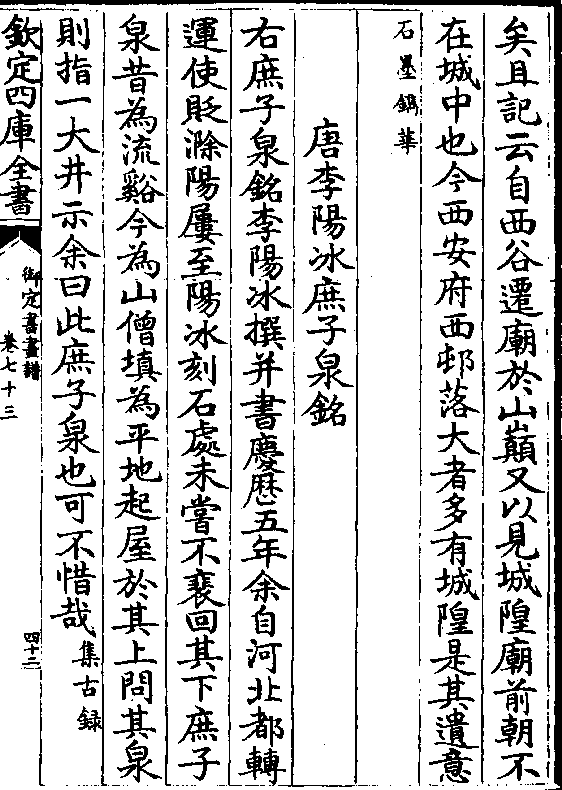 矣且記云自西谷遷廟於山巔又以見城隍廟前朝不
在城中也今西安府西邨落大者多有城隍是其遺意
石墨鐫華
唐李陽冰庶子泉銘
右庶子泉銘李陽冰撰并書慶歴五年余自河北都轉
運使貶滁陽屢至陽冰刻石處未嘗不裵回其下庶子
泉昔為流谿今為山僧填為平地起屋於其上問其泉
則指一大井示余曰此庶子泉也可不惜哉集古録
欽定四庫全書
御定書畫譜
卷七十三
四十二